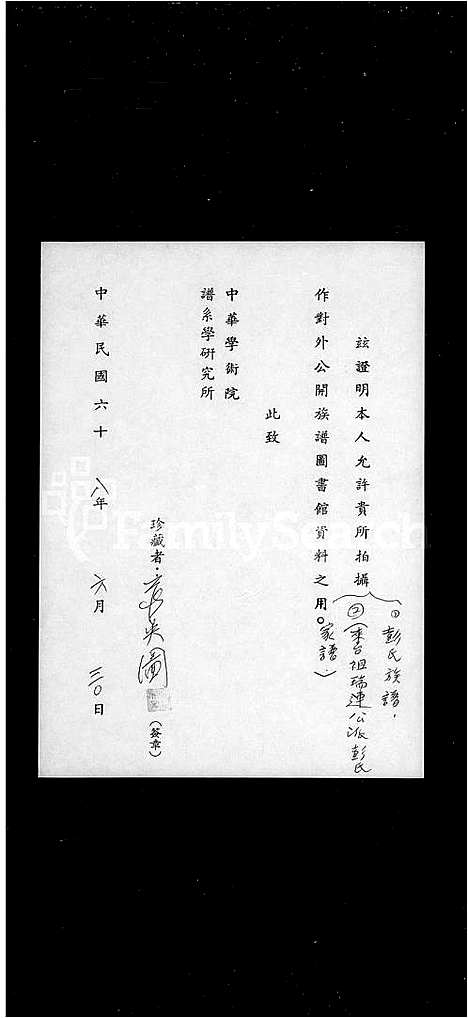 茲證明本人允許貴所拍攝
①彭氏族譜，
②（來台祖瑞連公派彭氏
家譜．）
作對外公開族譜圖書館資料之用。
此致
中華學術院
譜系學研究所
珍藏者．英圖（簽章）
中華民國六十八年六月三〇日
FamilySearch